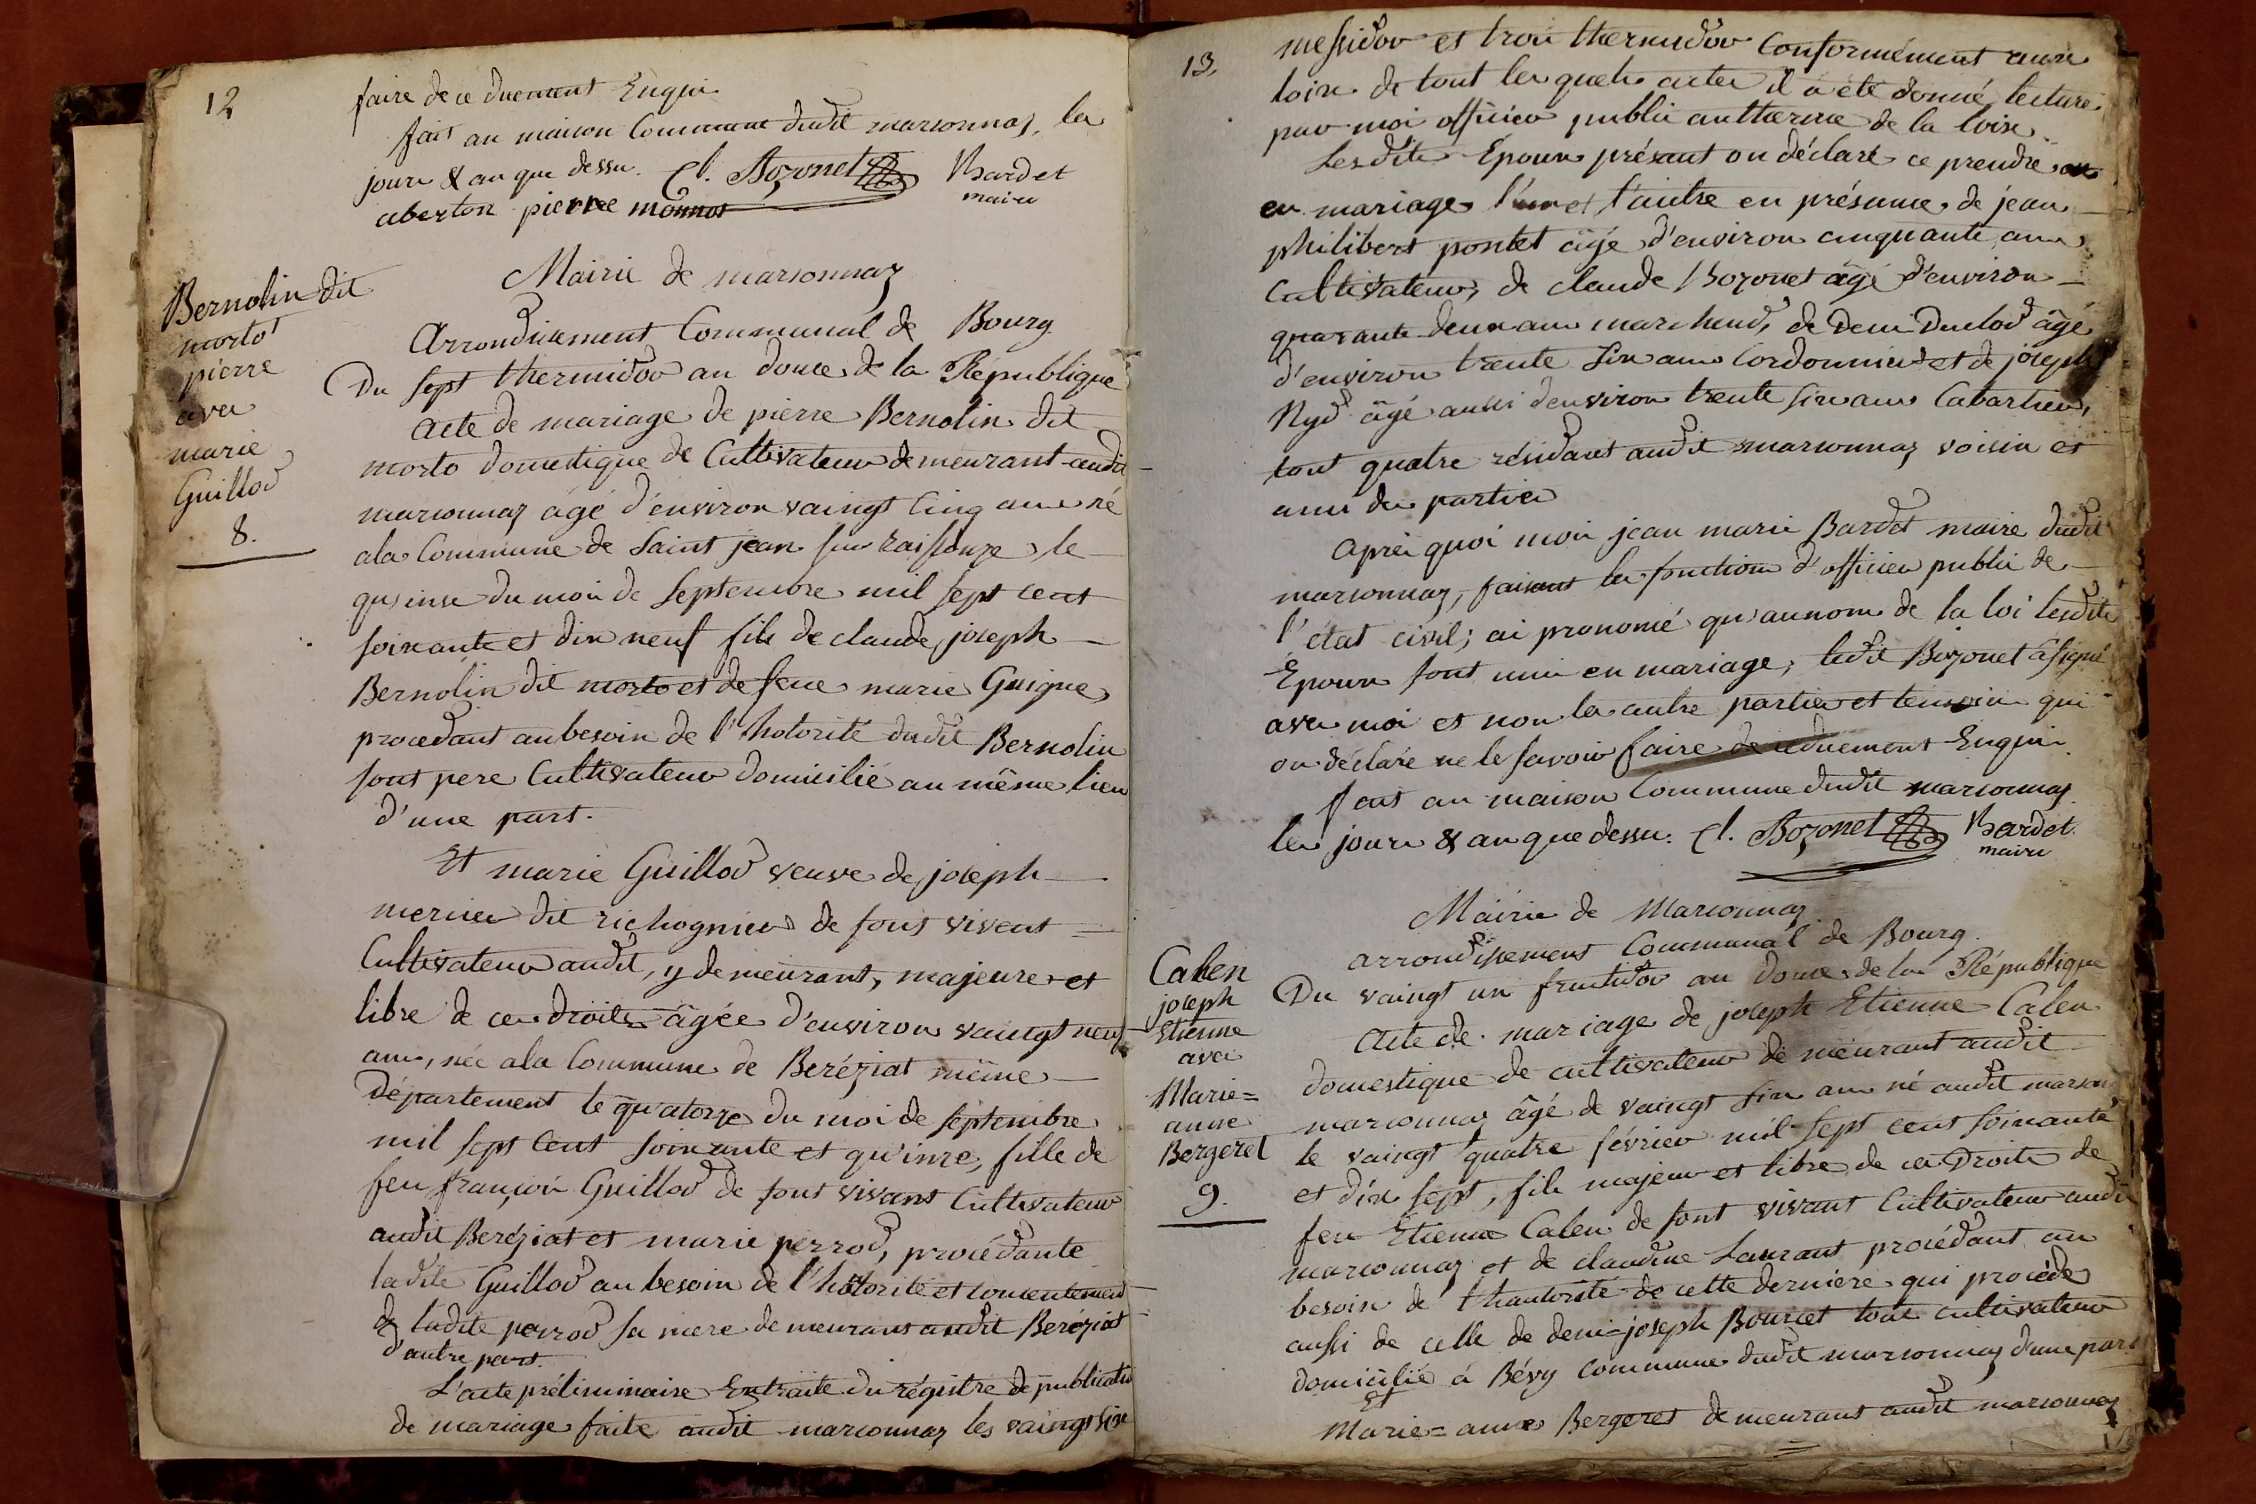 12
faire de ce duement Enquis
fait au maison Commune dudit marsonnaz, les
jours & an que dessu. Cl. Bozonet Bardet
maire
aberton pierre monnot
Bernolin dit
morto
pierre
avec
marie
Guillod
8.
Mairie de marsonnaz
Arrondisement Communal de Bourg
Du sept thermidor an douze de la République
Acte de mariage de pierre Bernolin dit
morto domestique de Cultivateur demeurant audit
marsonnaz âgé d'environ vaingt cinq ans né
ala Commune de Saint jean sur raissouze le
quinse du moi de Septembre mil sept cent
soixante et dix neuf fils de claude joseph
Bernolin dit morto et de feue marie Guigue
procedant au besoin de l'hotorité dudit Bernolin
sont pere Cultivateur domicilié au même lieu
d'une part.
Et marie Guillod veuve de joseph
mercier dit richognier de sont vivent
Cultivateur audit, y demeurant, majeure et
libre de ces droits âgée d'environ vaingt neuf
ans, née ala Commune de Beréziat même
Département le quatorze du moi de septembre
mil sept cent soixante et quinze, fille de
feu françois Guillod de sont vivant Cultivateur
audit Beréziat et marie perrod, procédante
ladite Guillod au besoin de l'hotorité et consentement
de ladite perrod sa mere demeurant audit Beréziat
d'autre part.
L'acte préliminaire Extraite du régistre de publicatio
de mariage faite audit marsonnaz les vaingt six
13.
messidor et trois thermidor Conformément aux
loix de tout lesquels actes il a été donné lecture
par moi officier public autherme de la loix
Lesdits Epoux présant on déclaré ce prendre
en mariage l'un et l'autre en présance de jean
philibert pontet âgé d'environ cinquante ans
Cultivateur, de claude Bozonet âgé d'environ
quarante deux ans marchand, de Deni Duclod âgé
d'environ trente six ans Cordonnier et de joseph
Nyd âgé aussi d'environ trente six ans Cabartier,
tout quatre résidant audit marsonnaz voisin et
ami des parties
Aprés quoi moi jean marie Bardet maire dudit
marsonnaz, faisant les fonctions d'officier public de
l'état civil; ai prononcé qu'au nom de la loi lesdits
Epoux sont uni en mariage, ledit Bozonet a signé
avec moi et non les autre parties et temoin qui
on déclaré ne le savoir faire de ce duement Enquis
fait au maison Commune dudit marsonnaz
les jours & an que dessu. Cl. Bozonet Bardet
maire
Calen
joseph
Etienne
avec
Marie=
anne
Bergeret
9.
Mairie de Marsonnaz
arrondisement Communal de Bourg.
Du vaingt un fructidor an douze de la République
Acte de mariage de joseph Etienne Calen
domestique de cultivateur demeurant audit
marsonnaz âgé de vaingt six ans né audit marson
le vaingt quatre février mil sept cent soixante
et dix sept, fils majeur et libre de ces Droits de
feu Etienne Calen de sont vivant Cultivateur audit
marsonnaz et de claudine Laurant procédant au
besoin de l'hautorité de cette derniére qui procéde
aussi de celle de deni=joseph Bourcet tout cultivateur
domicilié á Bévy commune dudit marsonnaz d'une part
Et
Marie=anne Bergeret demeurant audit marsonnaz